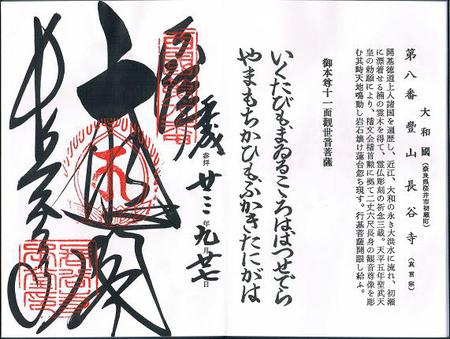 第八番 豊山 長谷寺 (真言宗)
大和國 (奈良県桜井市初瀬町)
開基徳道上人諸国を遍歴し、近江、大和の永き大洪水に流れ、初瀬
に漂着せる楠の霊木を得て、霊仏彫刻の祈念三蔵。天平五年聖武天
皇の勅願により、稽文会稽首勲に拠て二丈六尺長身の観音尊像を彫
む其時天地鳴動し岩石壊け蓮台忽ち現す。行基菩薩開眼し給ふ。
御本尊十一面観世音菩薩
いくたびもまゐるこころははつせでら
やまもちかひもふかきたにがは
奉拝
平成廿三年九月廿七日
大悲閣